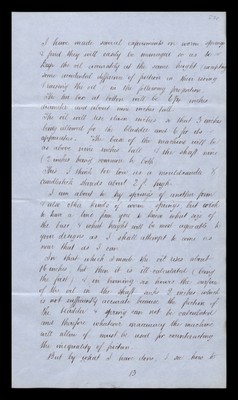 I have made several experiments on worm springs
& find they will easily be managed so as to
keep the oil accurately at the same height (excepting
some accidental difference of friction in their rising
& easing the oil) in the following proportion
The tin box at bottom will be 6 for inches
diameter and about nine inches tall
The oil will rise eleven inches, so that 3 inches
being allowed for the bladder and 6 for do
apparatus. The back of the machine will be
as above nine inches tall & the shaft nine
(2 inches being common to both)
This I think too low as a mould candle &
candlestick stands about 2 f. high
I am about to try springs of another form
& also other kinds of worm springs but wish
to have a line from you to know what size of
the base & what height will be most agreeable to
your designs as I shall attempt to come as
near that as I can
In that which I made the oil rises about
16 inches but then it is ill calculated (being
the first) & in burning an hour the surface
of the oil in the shaft sinks 2 inches which
is not sufficiently accurate because the friction of
the bladder & spring can not be calculated
and therefore whatever reasoning the machine
will allow of must be used for counteracting
the inequality of friction.
But by what I have done, I see how to
13